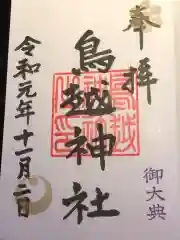 奉拝
鳥越神社
御大典
令和元年十一月二日